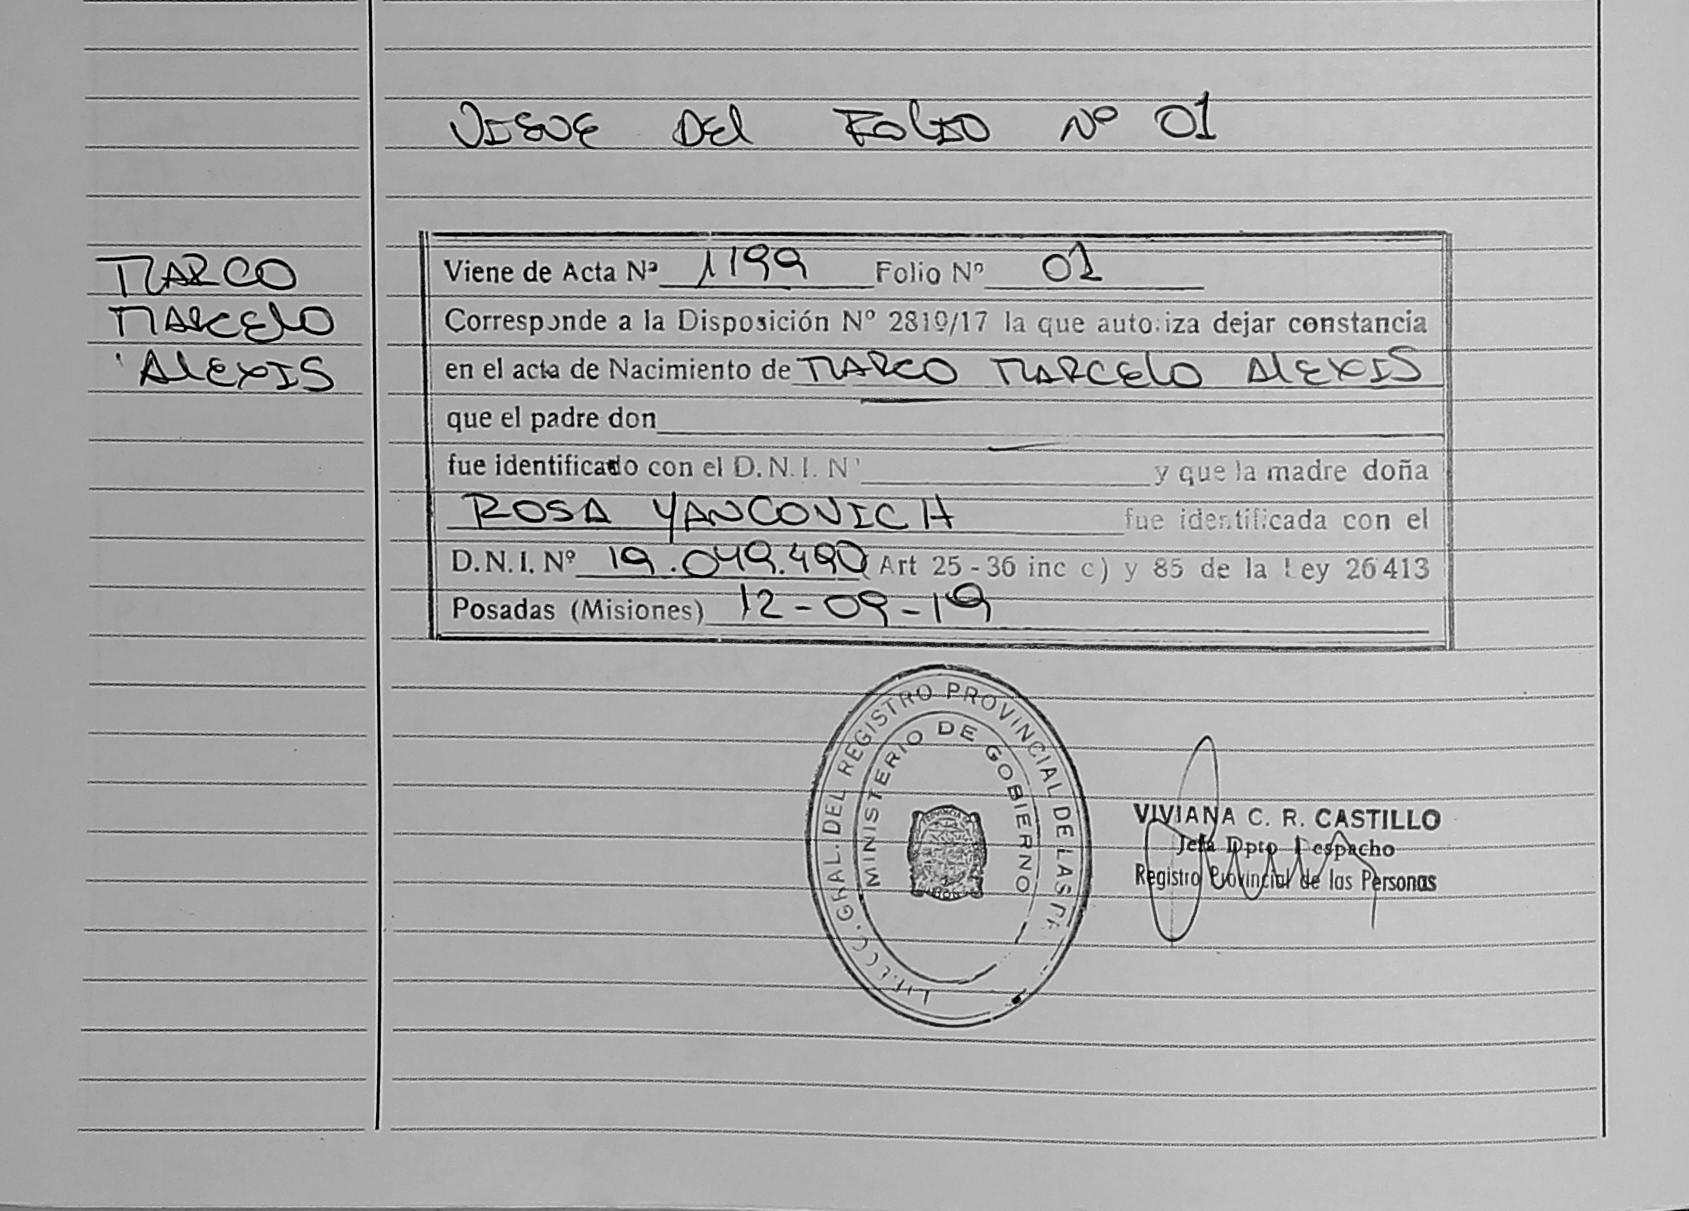 VIENE DEL FOLIO Nº 01
MARCO
MARCELO
ALEXIS
Viene de Acta Nº 1199 Folio Nº 01
Corresponde a la Disposición Nº 2819/17 la que autoriza dejar constancia
en el acta de Nacimiento de MARCO MARCELO ALEXIS
que el padre don
fue identificado con el D.N.I. Nº y que la madre doña
ROSA YANCOVICH fue identificada con el
D.N.I. Nº 19.049.490 Art 25 - 36 inc c) y 85 de la Ley 26413
Posadas (Misiones) 12-09-19
GRAL. DEL REGISTRO PROVINCIAL DE LAS
MINISTERIO DE GOBIERNO
VIVIANA C. R. CASTILLO
Jefa Dpto Despacho
Registro Provincial de las Personas